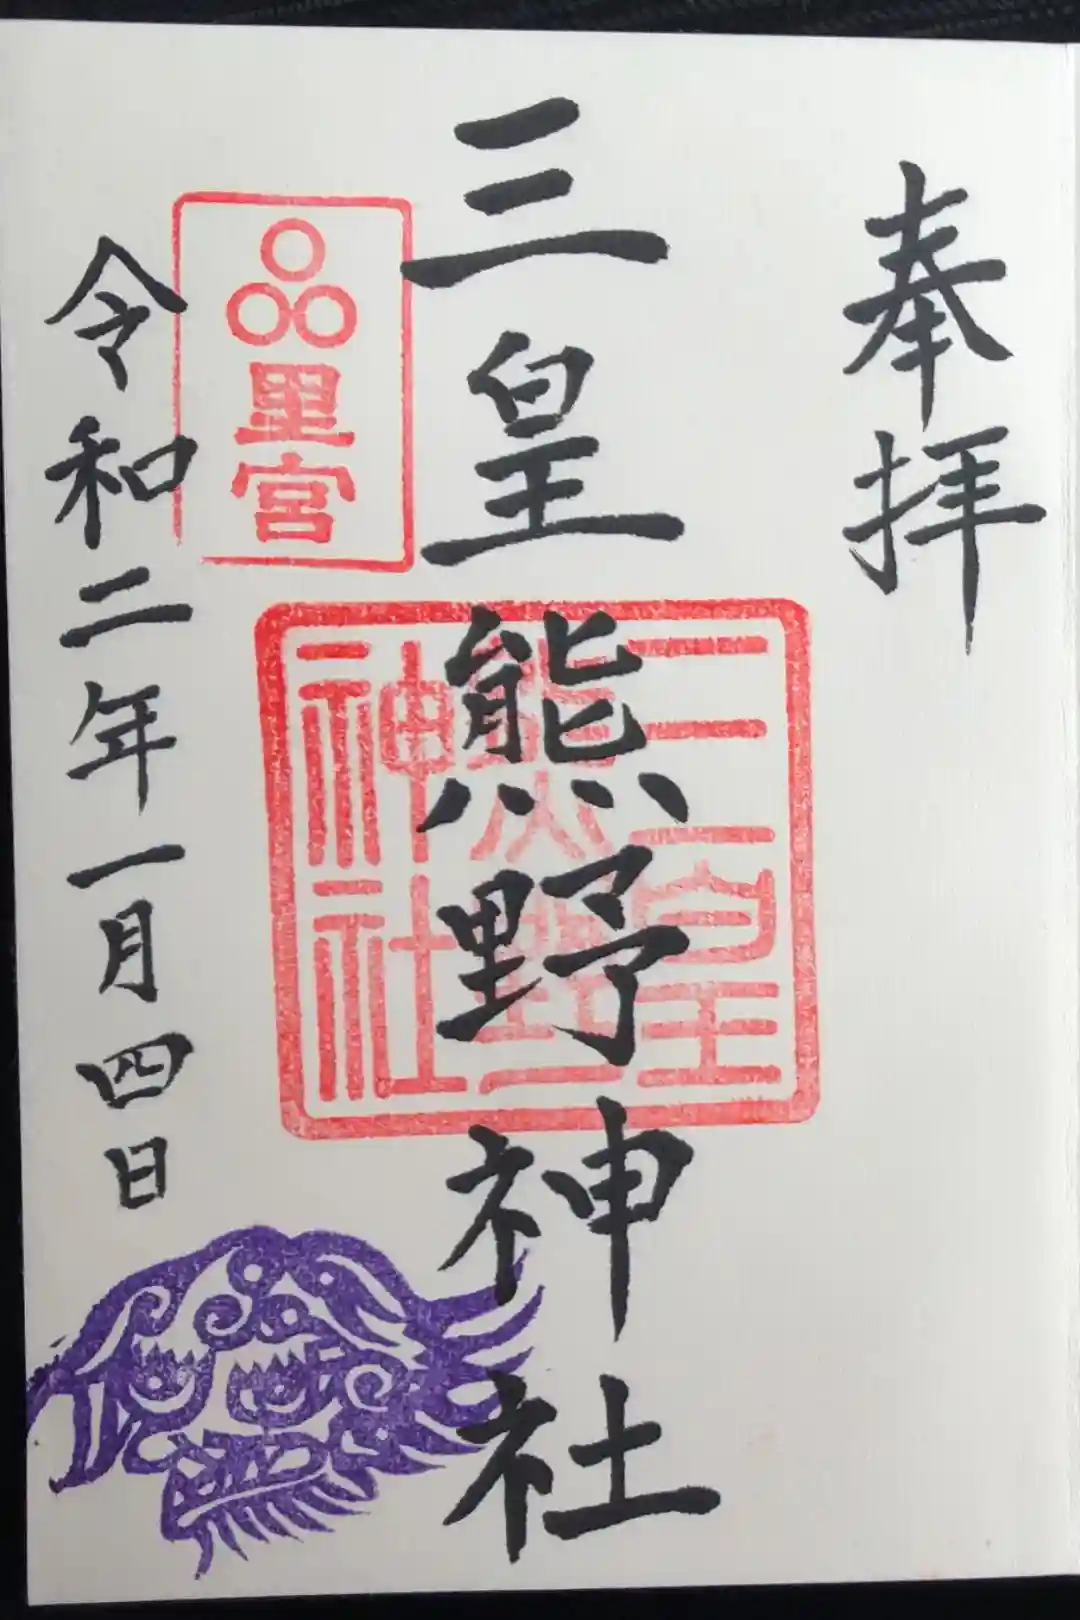 奉拝
三皇熊野神社
三皇
熊野
神社
里宮
令和二年一月四日